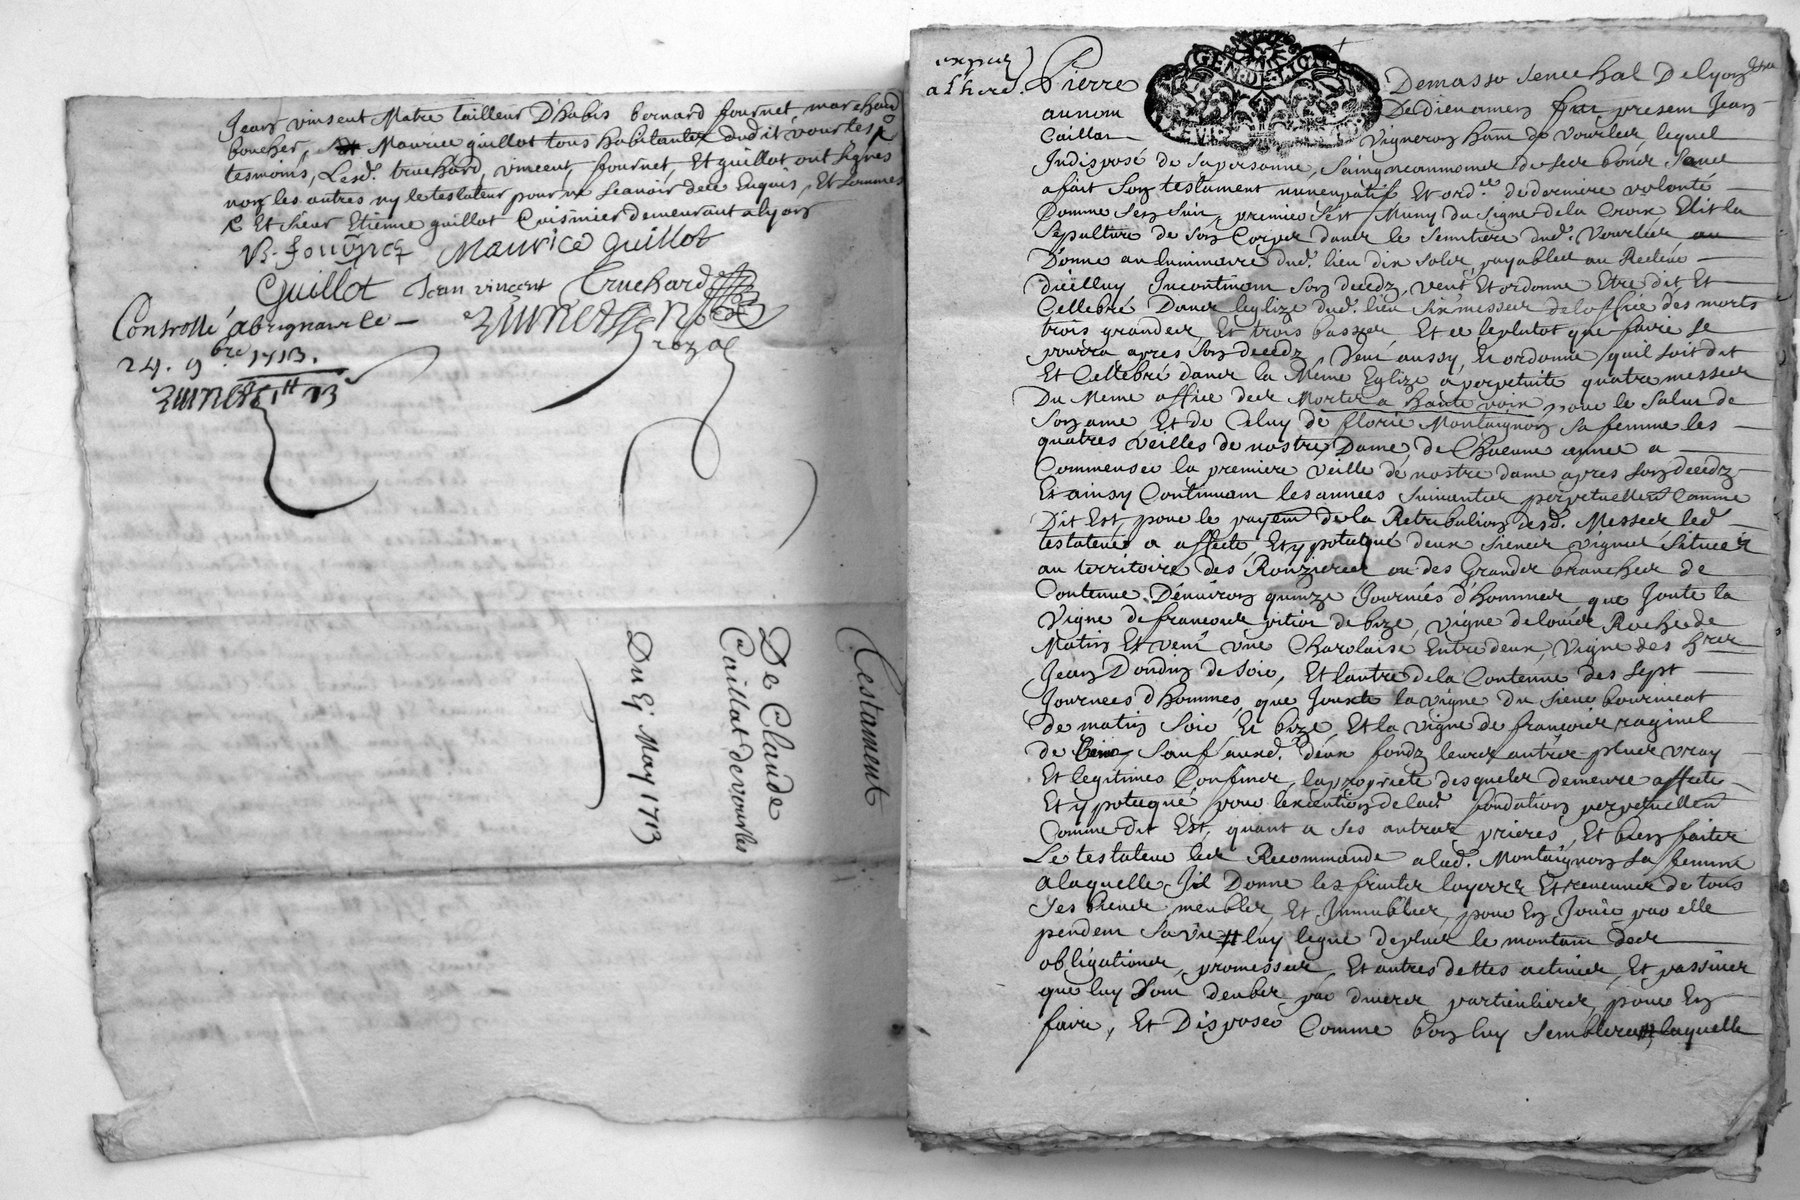 Jean vinsent Matre tailleur D'habis bernard fournet marchand
boucher, Maurice guillot tous habitantz dudit vourles
tesmoins, Lesd. truchard, vincent, fournet, Et guillot ont signes
non les autres ny le testateur pour ne scavoir de ce Enquis, Et sommes
Et sieur Etienne guillot Cuisinier demeurant a lyon
Maurice Guillot
Guillot Jean vincent Truchard
Controllé a brignais le
24. 9bre 1713.
Testament
De Claude
Caillat de vourles
Du Ej May 1713
a l'here.
Pierre Demasso senechal De lyon
au nom De Dieu amen fut present Jean
Caillat Vigneron hant de Vourles lequel
GEN.DE.LION
Indisposé de sa personne, sain neanmoins de ses bons sens
a fait son testament nuncupatif Et ord.re de derniere volonté
Comme sen suit, premier s'est Muny du signe de la Croix, Elit la
sepulture de son Corps dans le semitiere dud. Vourles
Donne au luminaire dud. lieu dix solz payables au Recteur
Dicelluy Incontinant son decedz, veut Et ordonne Etre dit Et
Cellebré Dans leglize dud. lieu six messes de loffice des morts
trois grandes, Et trois basses Et ce le plutot que faire se
pourra apres son decedz, Veut aussy, Et ordonne, quil soit dit
Et Cellebré dans la Meme Eglize a perpetuite quatre messes
Du Meme office des Mortz a haute voix pour le salut de
son ame, Et de Celuy de florie Montaignon sa femme les
quatres Veilles de nostre Dame, de Chacune annee a
Commenser la premiere veille de nostre dame apres son decedz
Et ainsy Continuant les annees suivantes perpetuellent Comme
Dit Est, pour le payemt de la Retribution desd. Messes led
testateur a affecté, Et ypotequé deux sienes vignes, situees
au territoire des Ronzieres ou des Grandes branches de
Contenue Denviron quinze Journées d'hommes que Joute la
Vigne de francois pitiot de bize, vigne de louis Roche de
Matin Et vent une Charolaise Entre deux, Vigne des hrs
Jean Dondin de soir, Et lautre de la Contenue des sept
Journees d'hommes, que Jouxte la vigne du sieur bourneat
de matin soir Et bize, Et la vigne de francois raginel
de sauf ausd. deux fondz leurs autres plus vray
Et legitimes Confins, la proprieté desquelz demeure affectee
Et ypotequé, pour lexecution de lad. fondation perpetuellent
Comme dit Est, quant a ses autres prieres, Et bien faitz
Le testateur les Recommande a lad. Montaignon sa femme
a laquelle, Jil Donne les fruits loyerz Et revennes de tous
ses biens meubles, Et Immeubles, pour En Jouir par elle
pendent sa vie # luy legue de plus le montant des
obligations, promesses, Et autres dettes actives, Et passives
que luy sont deubz par divers particuliers, pour En
faire, Et Disposer Comme bon luy semblera # laquelle